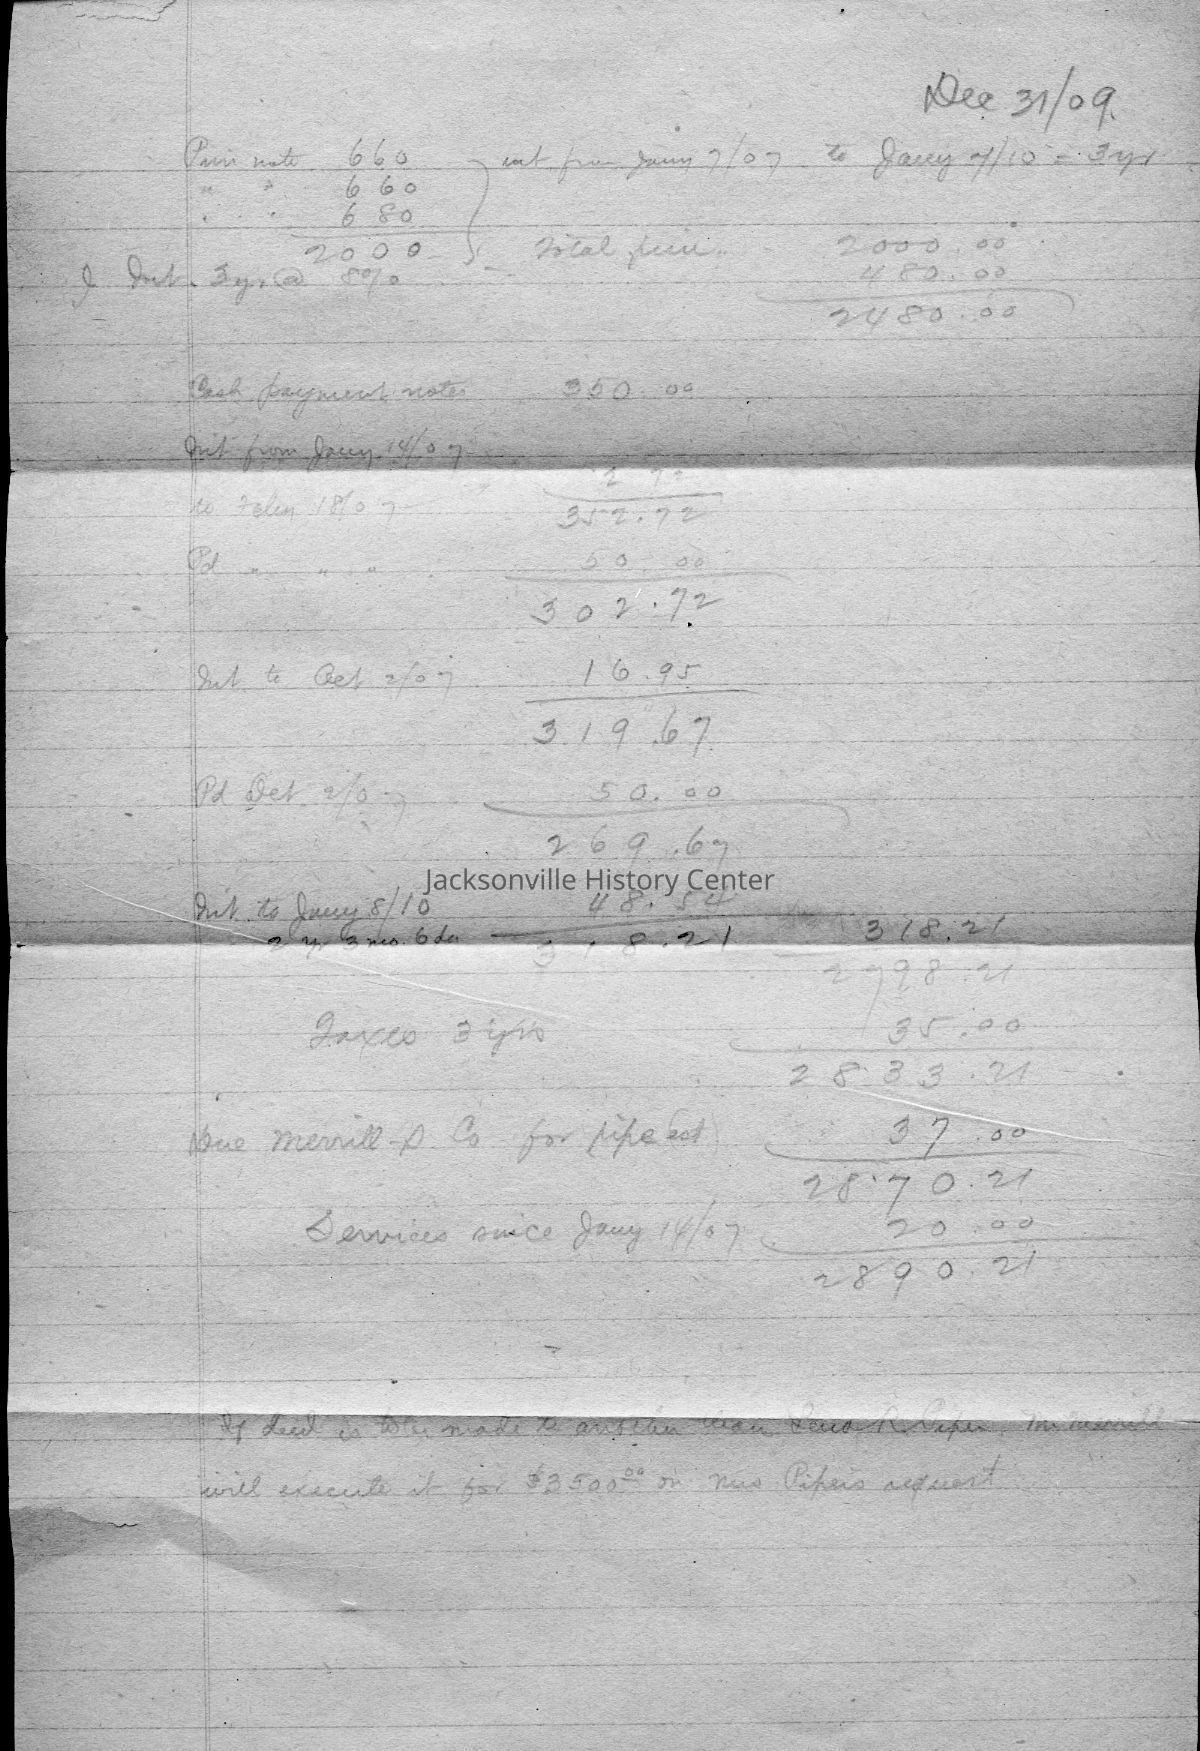 Dec 31/09
Prin note 660 int from Jany 7/07 to Jany 7/10 = 3 yrs
" " 660
" " 680
2000 Total prin. 2000.00
Int. 3 yrs @ 8% 480.00
2480.00
Cash payment notes 350.00
Int from Jany 14/07
2 72
to Feby 18/07 352.72
Pd " " " 50.00
302.72
Int to Oct 2/07 16.95
319.67
Pd Oct 2/07 50.00
269.67
Jacksonville History Center
Int to Jany 8/10 48.54
2 yr 3 mo. 6 da 318.21 318.21
2798.21
Taxes 3 yrs 35.00
2833.21
Due Merrill-S Co for pipe 37.00
2870.21
Services since Jany 14/07 20.00
2890.21
If deed is to be made to another than R Piper, Mr Merrill
will execute it for $3500.00 on Mrs Pipers request